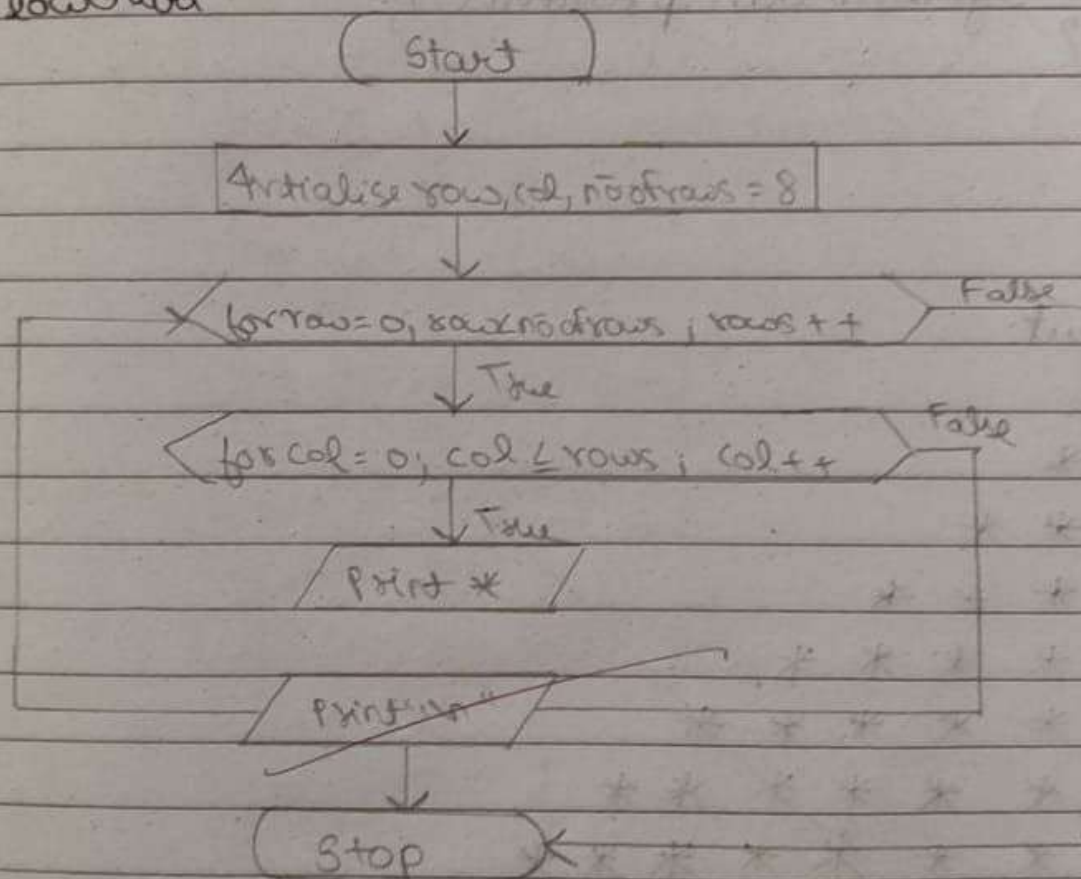 Start
Initialise row, col, noofrows = 8
for row = 0, row<noofrows ; rows ++
False
True
for col = 0; col ≤ rows ; col ++
False
True
Print *
Print "\n"
Stop